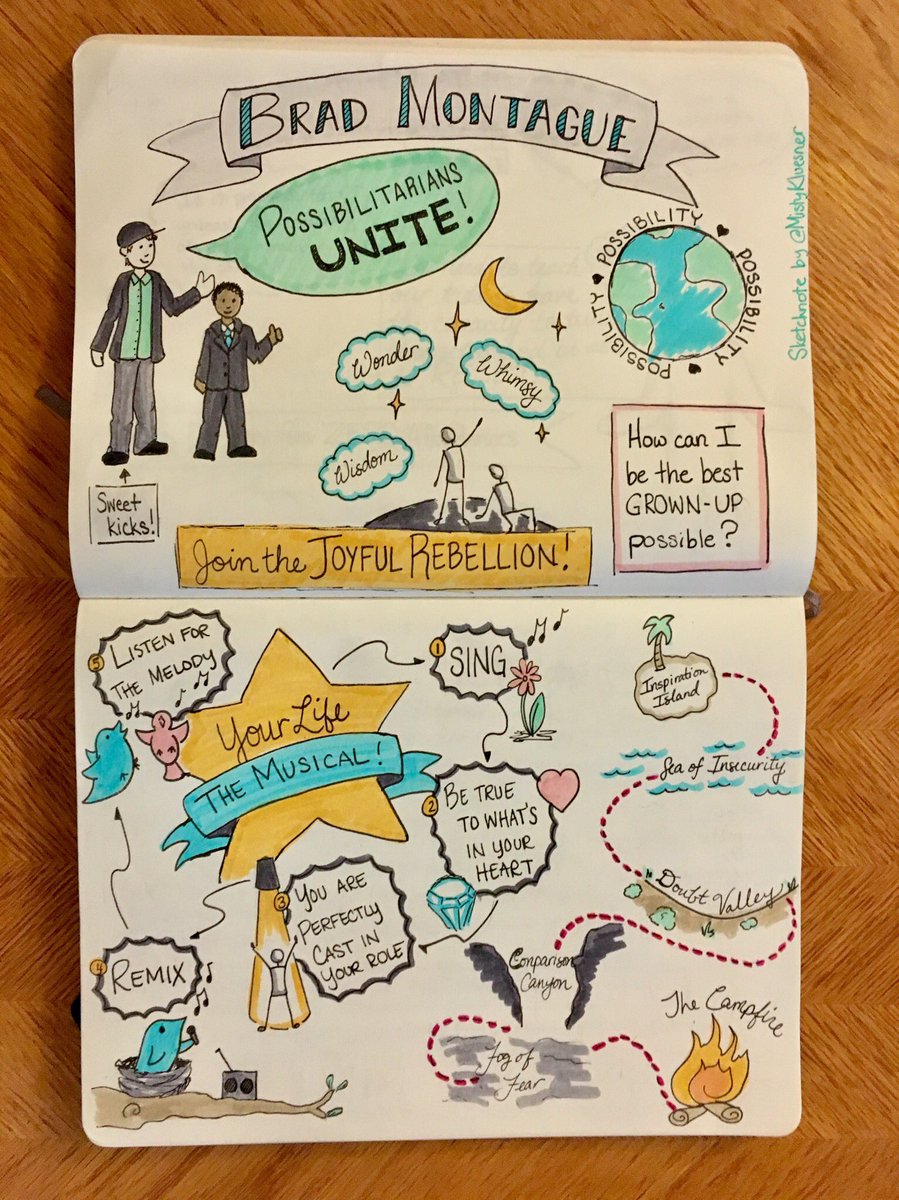 BRAD MONTAGUE
POSSIBILITARIANS
UNITE!
Sketchnote by @MistyKluesner
POSSIBILITY
POSSIBILITY
POSSIBILITY
POSSIBILITY
Wonder
Whimsy
Wisdom
Sweet
kicks!
How can I
be the best
GROWN-UP
possible?
Join the JOYFUL REBELLION!
Your Life
THE MUSICAL!
1
SING
2
BE TRUE
TO WHAT'S
IN YOUR
HEART
3
YOU ARE
PERFECTLY
CAST IN
YOUR ROLE
4
REMIX
5
LISTEN FOR
THE MELODY
Inspiration
Island
Sea of Insecurity
Doubt Valley
Comparison
Canyon
Fog of
Fear
The Campfire